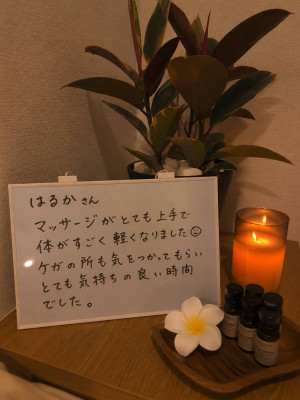 はるかさん
マッサージがとても上手で
体がすごく軽くなりました☺
ケガの所も気をつかってもらい
とても気持ちの良い時間
でした。